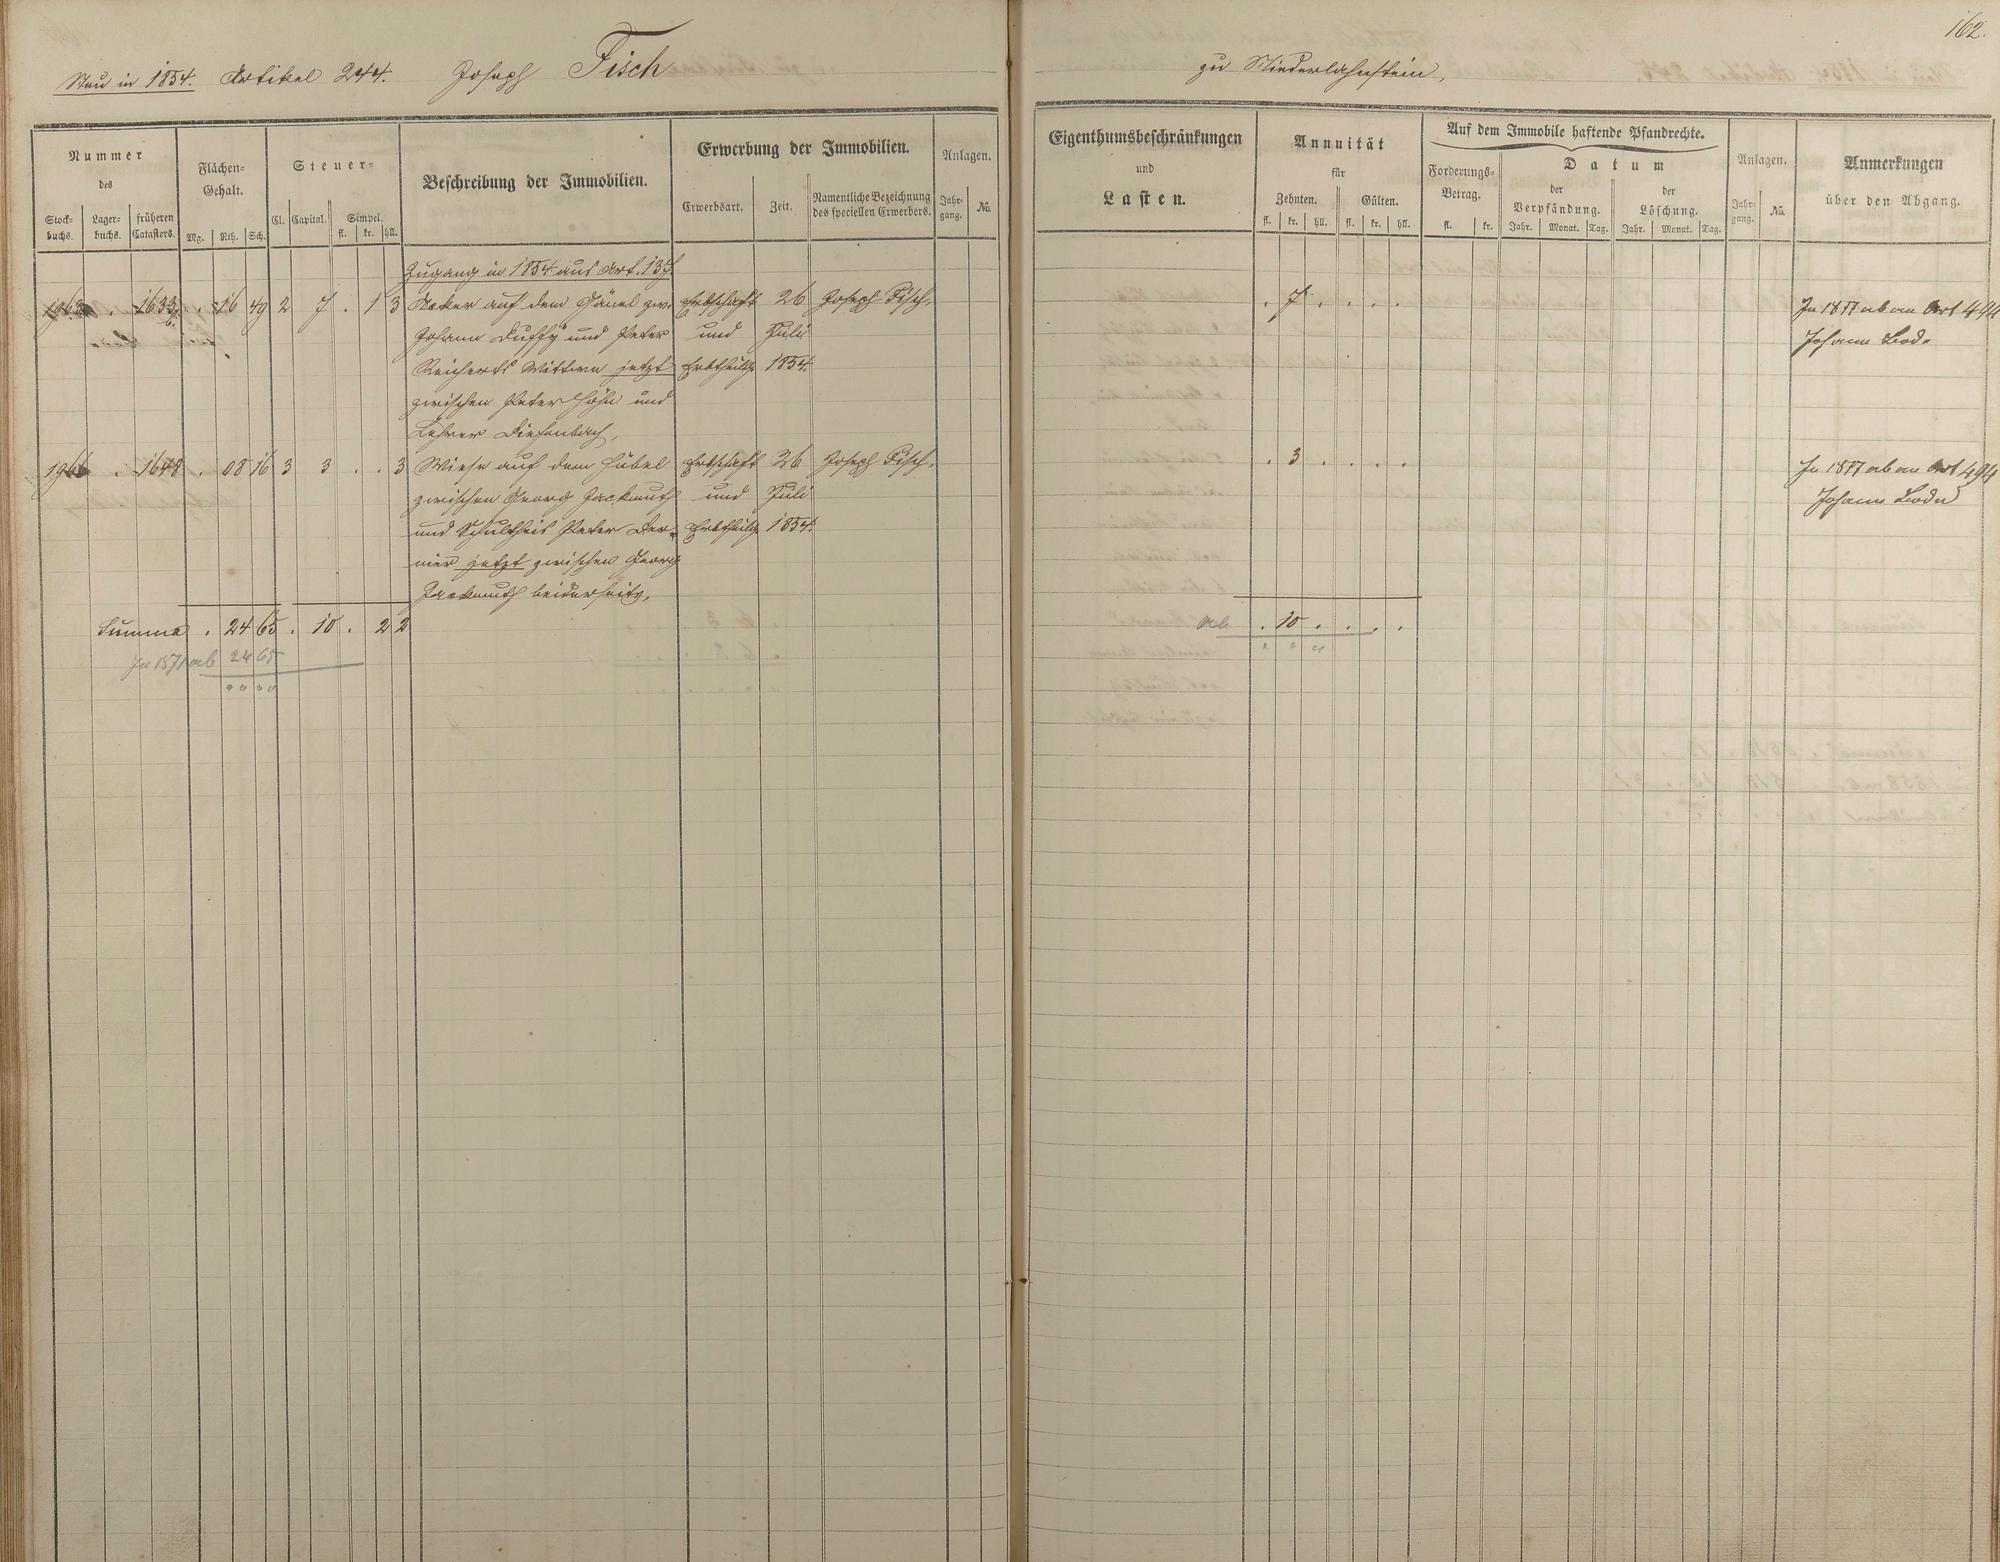 162.
Neu in 1854. Artikel 244. Joseph Fisch zu Niederlahnstein,
Nummer
des
Stock-
buchs.
Lager-
buchs.
früheren
Catasters.
Flächen-
Gehalt.
Mg. Rth. Sch.
Steuer-
Cl. Capital. Simpel.
fl. kr. hll.
Beschreibung der Immobilien.
Erwerbung der Immobilien.
Erwerbsart. Zeit. Namentliche Bezeichnung
des speciellen Erwerbers.
Anlagen.
Jahr-
gang. No.
Eigenthumsbeschränkungen
und
Lasten.
Annuität
für
Zehnten. Gülten.
fl. kr. hll. fl. kr. hll.
Auf dem Immobile haftende Pfandrechte.
Forderungs-
Betrag.
fl. kr.
Datum
der
Verpfändung.
Jahr. Monat. Tag.
der
Löschung.
Jahr. Monat. Tag.
Anlagen.
Jahr-
gang. No.
Anmerkungen
über den Abgang.
Zugang in 1854 aus Art. 137
1633 . 16 49 2 7 . 1 3 Acker auf dem zw. Erbschaft 26 Joseph Fisch. . 7 . . . . In 1877 ab an Art 494
Johann Duffy und Peter und Juli Johann Bode
Reicherts Wittwe jetzt Erbtheilg 1854.
zwischen Peter Höhn und
Lehrer Diefenbach,
1966 . 1648 . 08 16 3 3 . . 3 Wiese auf dem Hübel Erbschaft 26 Joseph Fisch. . 3 . . . . In 1877 ab an Art 494
zwischen Georg Jackmuth und Juli Johann Bode
und Schultheis Peter Der- Erbtheilg 1854.
nier jetzt zwischen Georg
Jackmuth beiderseits,
Summa . 24 65 . 10 . 2 2 ab . 10 . . . .
In 1877 ab 24 65